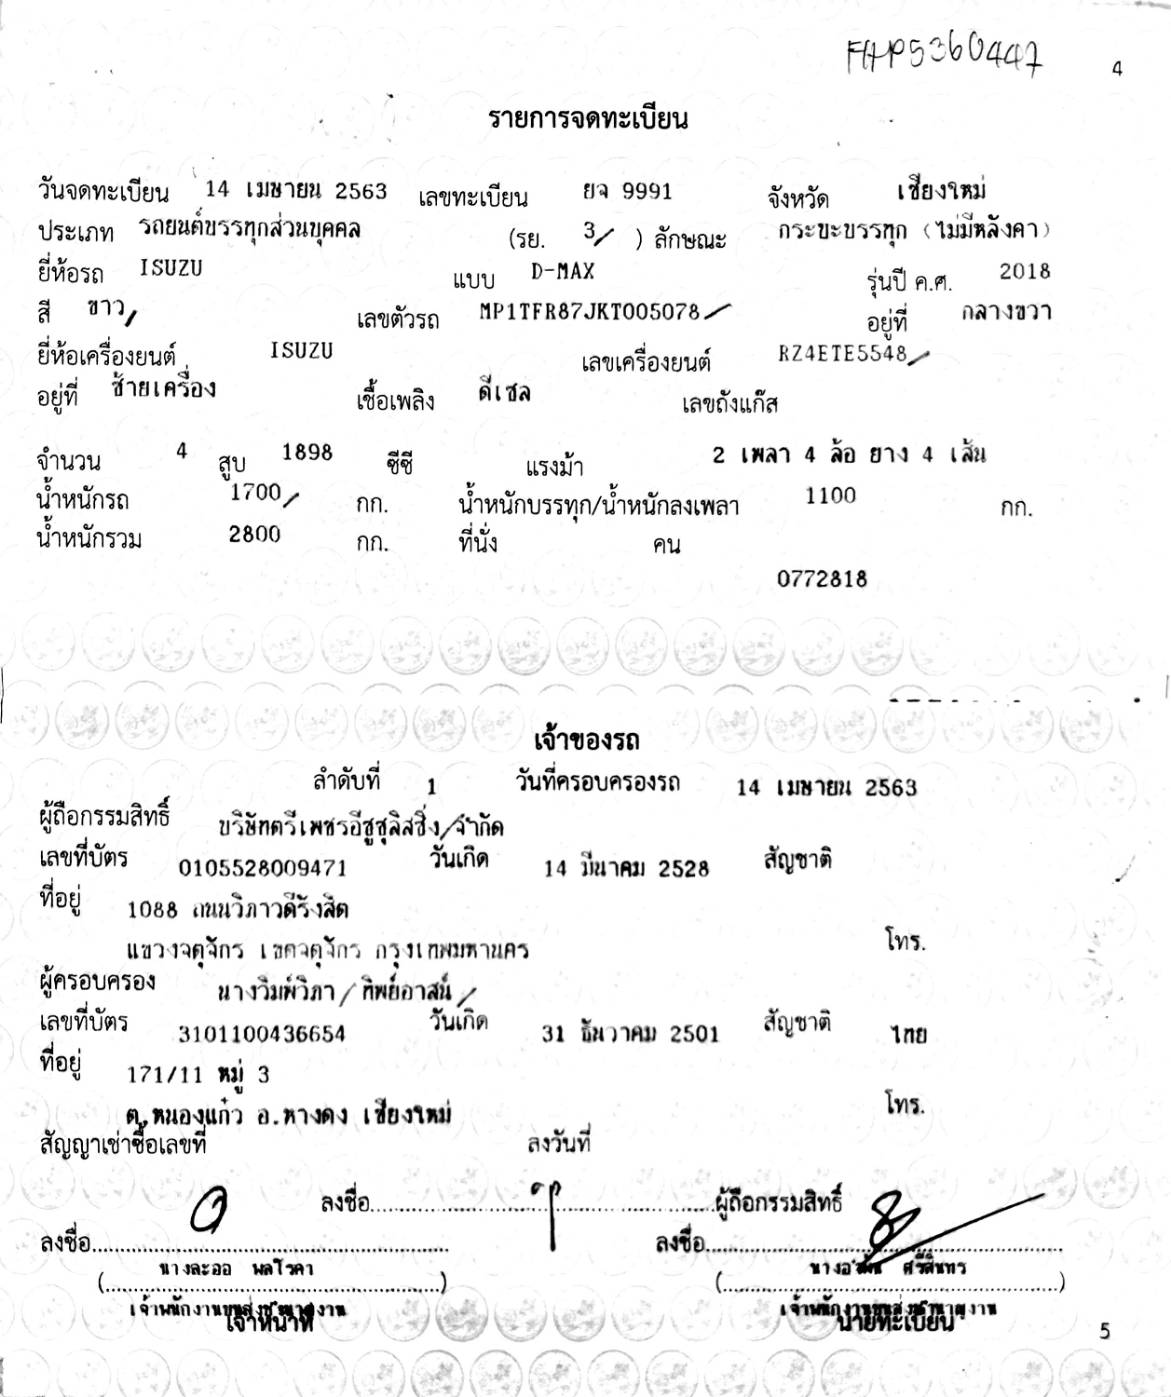 FHP5360447
4
รายการจดทะเบียน
วันจดทะเบียน 14 เมษายน 2563 เลขทะเบียน ยจ 9991 จังหวัด เชียงใหม่
ประเภท รถยนต์บรรทุกส่วนบุคคล (รย. 3 ) ลักษณะ กระบะบรรทุก (ไม่มีหลังคา)
ยี่ห้อรถ ISUZU แบบ D-MAX รุ่นปี ค.ศ. 2018
สี ขาว เลขตัวรถ MP1TFR87JKT005078 อยู่ที่ กลางขวา
ยี่ห้อเครื่องยนต์ ISUZU เลขเครื่องยนต์ RZ4ETE5548
อยู่ที่ ซ้ายเครื่อง เชื้อเพลิง ดีเซล เลขถังแก๊ส
จำนวน 4 สูบ 1898 ซีซี แรงม้า 2 เพลา 4 ล้อ ยาง 4 เส้น
น้ำหนักรถ 1700 กก. น้ำหนักบรรทุก/น้ำหนักลงเพลา 1100 กก.
น้ำหนักรวม 2800 กก. ที่นั่ง คน
0772818
เจ้าของรถ
ลำดับที่ 1 วันที่ครอบครองรถ 14 เมษายน 2563
ผู้ถือกรรมสิทธิ์ บริษัทตรีเพชรอีซูซุลิสซิ่ง/จำกัด
เลขที่บัตร 0105528009471 วันเกิด 14 มีนาคม 2528 สัญชาติ
ที่อยู่ 1088 ถนนวิภาวดีรังสิต
แขวงจตุจักร เขตจตุจักร กรุงเทพมหานคร โทร.
ผู้ครอบครอง นางวิมพ์วิภา / ทิพย์อาสน์ /
เลขที่บัตร 3101100436654 วันเกิด 31 ธันวาคม 2501 สัญชาติ ไทย
ที่อยู่ 171/11 หมู่ 3
ต.หนองแก๋ว อ.หางดง เชียงใหม่ โทร.
สัญญาเช่าซื้อเลขที่ ลงวันที่
ลงชื่อ ผู้ถือกรรมสิทธิ์
ลงชื่อ ลงชื่อ
นางละออ พลโรคา ศรีสินทร
เจ้าพนักงานขนส่งชำนาญงาน เจ้าพนักงานขนส่งชำนาญงาน
เจ้าหน้าที่ นายทะเบียน
5